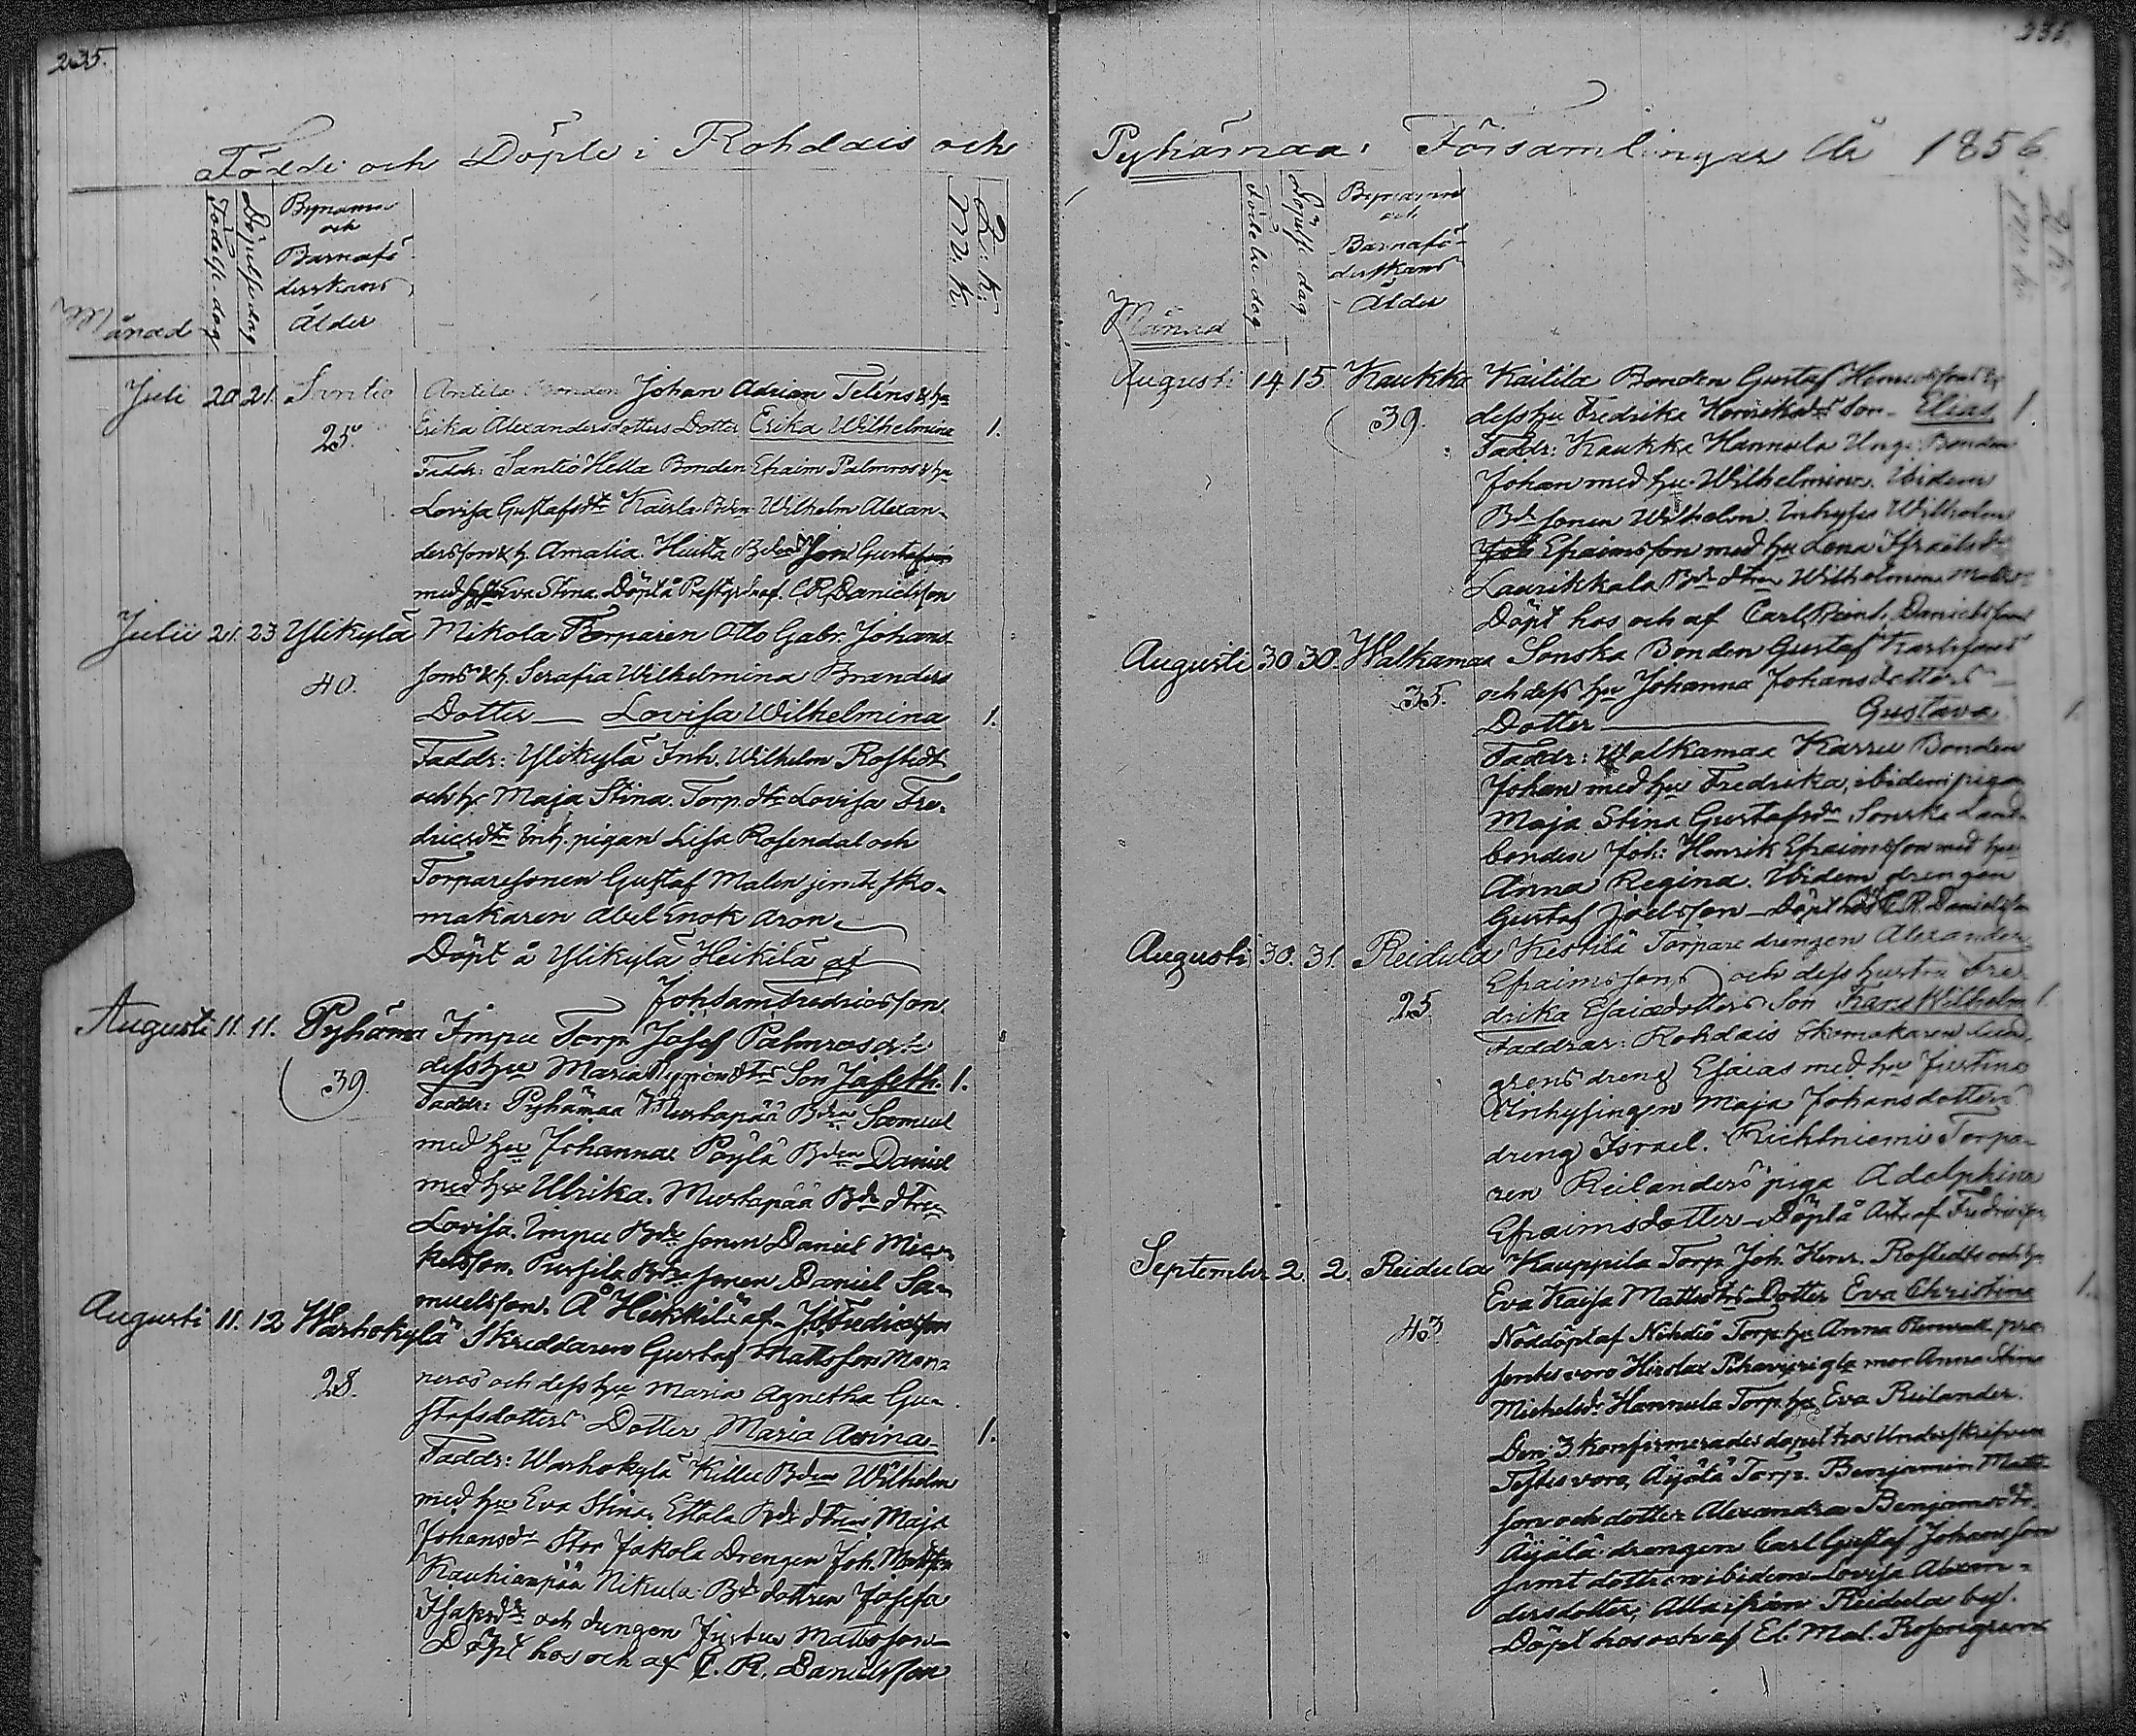 235.
Födde och Döpte i Rohdais och
Månad
Födelse dag
Döpelse dag
Bynamn
och
Barnafö-
derskans
Ålder
M. K.
Q. K.
Juli 20 21. Santio Antila Bonden Johan Adrian Teléns & hu
25. Erika Alexandersdotters Dotter Erika Wilhelmina 1.
Faddr: Santio Hella Bonden Efraim Palmros & hu
Lovisa Gustafsdtr Kaisla Bden Wilhelm Alexan-
dersson & h. Amalia. Bdes Son Gustaf
med Eva Stina. Döpt å Prestgrd af C.R. Danielsson
Julii 21. 23 Ylikylä Mikola Torparen Otto Gabr. Johans-
40. sons & h. Serafia Wilhelmina Branders
Dotter — Lovisa Wilhelmina 1.
Faddr: Ylikylä Inh. Wilhelm Rostedt
och h. Maja Stina. Torp. dtr Lovisa Fre-
dricsdtr Inh. pigan Lisa Rosendal och
Torparesonen Gustaf Malen jemte sko-
makaren Abel Enok Aron
Döpt å Ylikylä Heikilä af
Joh. Sam Fredricsson.
Augusti 11. 11. Pyhäma Impu Torp. Josef Palmros och
39. dess hu Maria dtrs Son Jafeth. 1.
Faddr: Pyhämaa Mustapää Bden Samuel
med hu Johanna Pöylä Bden Daniel
med hu Ulrika. Mustapää Bde dtren
Lovisa. Impu Bde sonen Daniel Mic-
kelsson. Pursila Bde sonen Daniel Sa-
muelsson. Å Heikkilä af J. S. Fredricsson
Augusti 11. 12 Warhokylä Skräddaren Gustaf Mattsson Man-
28. neros och dess hu Maria Agnetha Gu-
stafsdotters Dotter Maria Avina 1.
Faddr: Warhokylä Killu Bden Wilhelm
med hu Eva Stina; Ettala Bde dtren Maja
Johansdr Stor Jakola Drengen Joh. Mattsson
Kauhianpää Nikula Bde dottren Josefa
Isaksdr och drengen Justus Mattsson
Döpt hos och af C. R. Danielsson
236.
Pyhämaa Församlingar År 1856.
Månad
Födelse dag
Döpelse dag
Bynamn
och
Barnafö-
derskans
Ålder
M. K.
Q. K.
Augusti 14 15 Kaukka Kailila Bonden Gustaf Henricssons &
39. dess hu Fredrika Henriksdrs Son - Elias 1.
Faddr: Kaukka Hannula Unge Bonden
Johan med hu Wilhelmina. Ibidem
Bde sonen Wilhelm. Inhyses Wilhelm
Efraimsson med hu Lena Israelsdr
Laurikkala Bde dtren Wilhelmina
Döpt hos och af Carl Reinh. Danielsson
Augusti 30. 30. Walkamaa Sonska Bonden Gustaf Karlssons
35. och dess hu Johanna Johansdotters —
Dotter — Gustava 1.
Faddr: Walkamaa Karru Bonden
Johan med hu Fredrika, ibidem pigan
Maja Stina Gustafsdr Sonska Land-
bonden Joh: Henrik Efraimsson med hu
Anna Regina. Ibidem drengen
Gustaf Joelsson — Döpt hos C. R. Danielsson
Augusti 30. 31. Reidula Kestilä Torpare drengen Alexander
25. Efraimssons och dess hustru Fre-
drika Esaiædotters Son Frans Wilhelm 1.
Faddrar: Rohdais Skomakaren Lind-
grens dreng Esaias med hu Justina
Inhysingen Maja Johansdotters
dreng Israel. Richtniemi Torpa-
ren Reilanders piga Adolphina
Efraimsdotter — Döpt å af Fredricsson
September 2. 2. Reidula Kauppila Torp. Joh. Henr. Rostedts och h.
43. Eva Kaisa Mattsdrs Dotter Eva Christina 1.
Nöddöpt af Nihdiö Torp. hu Anna pre-
sentes voro Hirslax mor Anna Stina
Michelsdr Hannula Torp. hu Eva Reilander.
Den 3. konfirmerades dopet hos Underskrifven
Testes voro, Äyälä Torp. Benjamin Matts-
son och dotter Alexandra Benjamsdr
Äyälä drengen Carl Gustaf Johansson
samt dottren ibidem Lovisa Alexan-
dersdotter; Alla ifrån Reidula by.
Döpt hos och af El. Mal. Rosengren